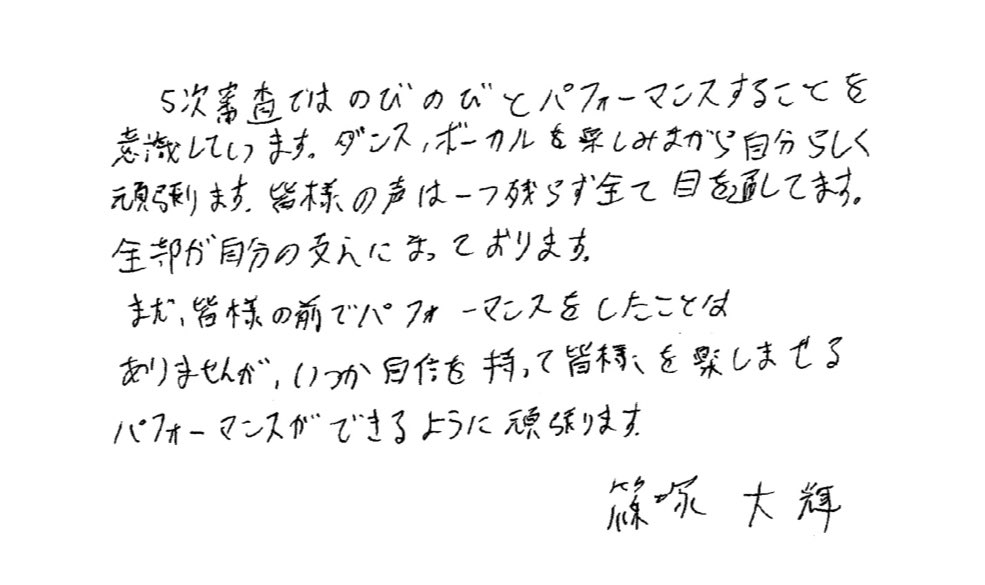 5次審査ではのびのびとパフォーマンスすることを
意識しています。ダンス、ボーカルを楽しみながら自分らしく
頑張ります。皆様の声は一つ残らず全て目を通してます。
全部が自分の支えになっております。
まだ、皆様の前でパフォーマンスをしたことは
ありませんが、いつか自信を持って皆様を楽しませる
パフォーマンスができるように頑張ります。
篠塚 大輝